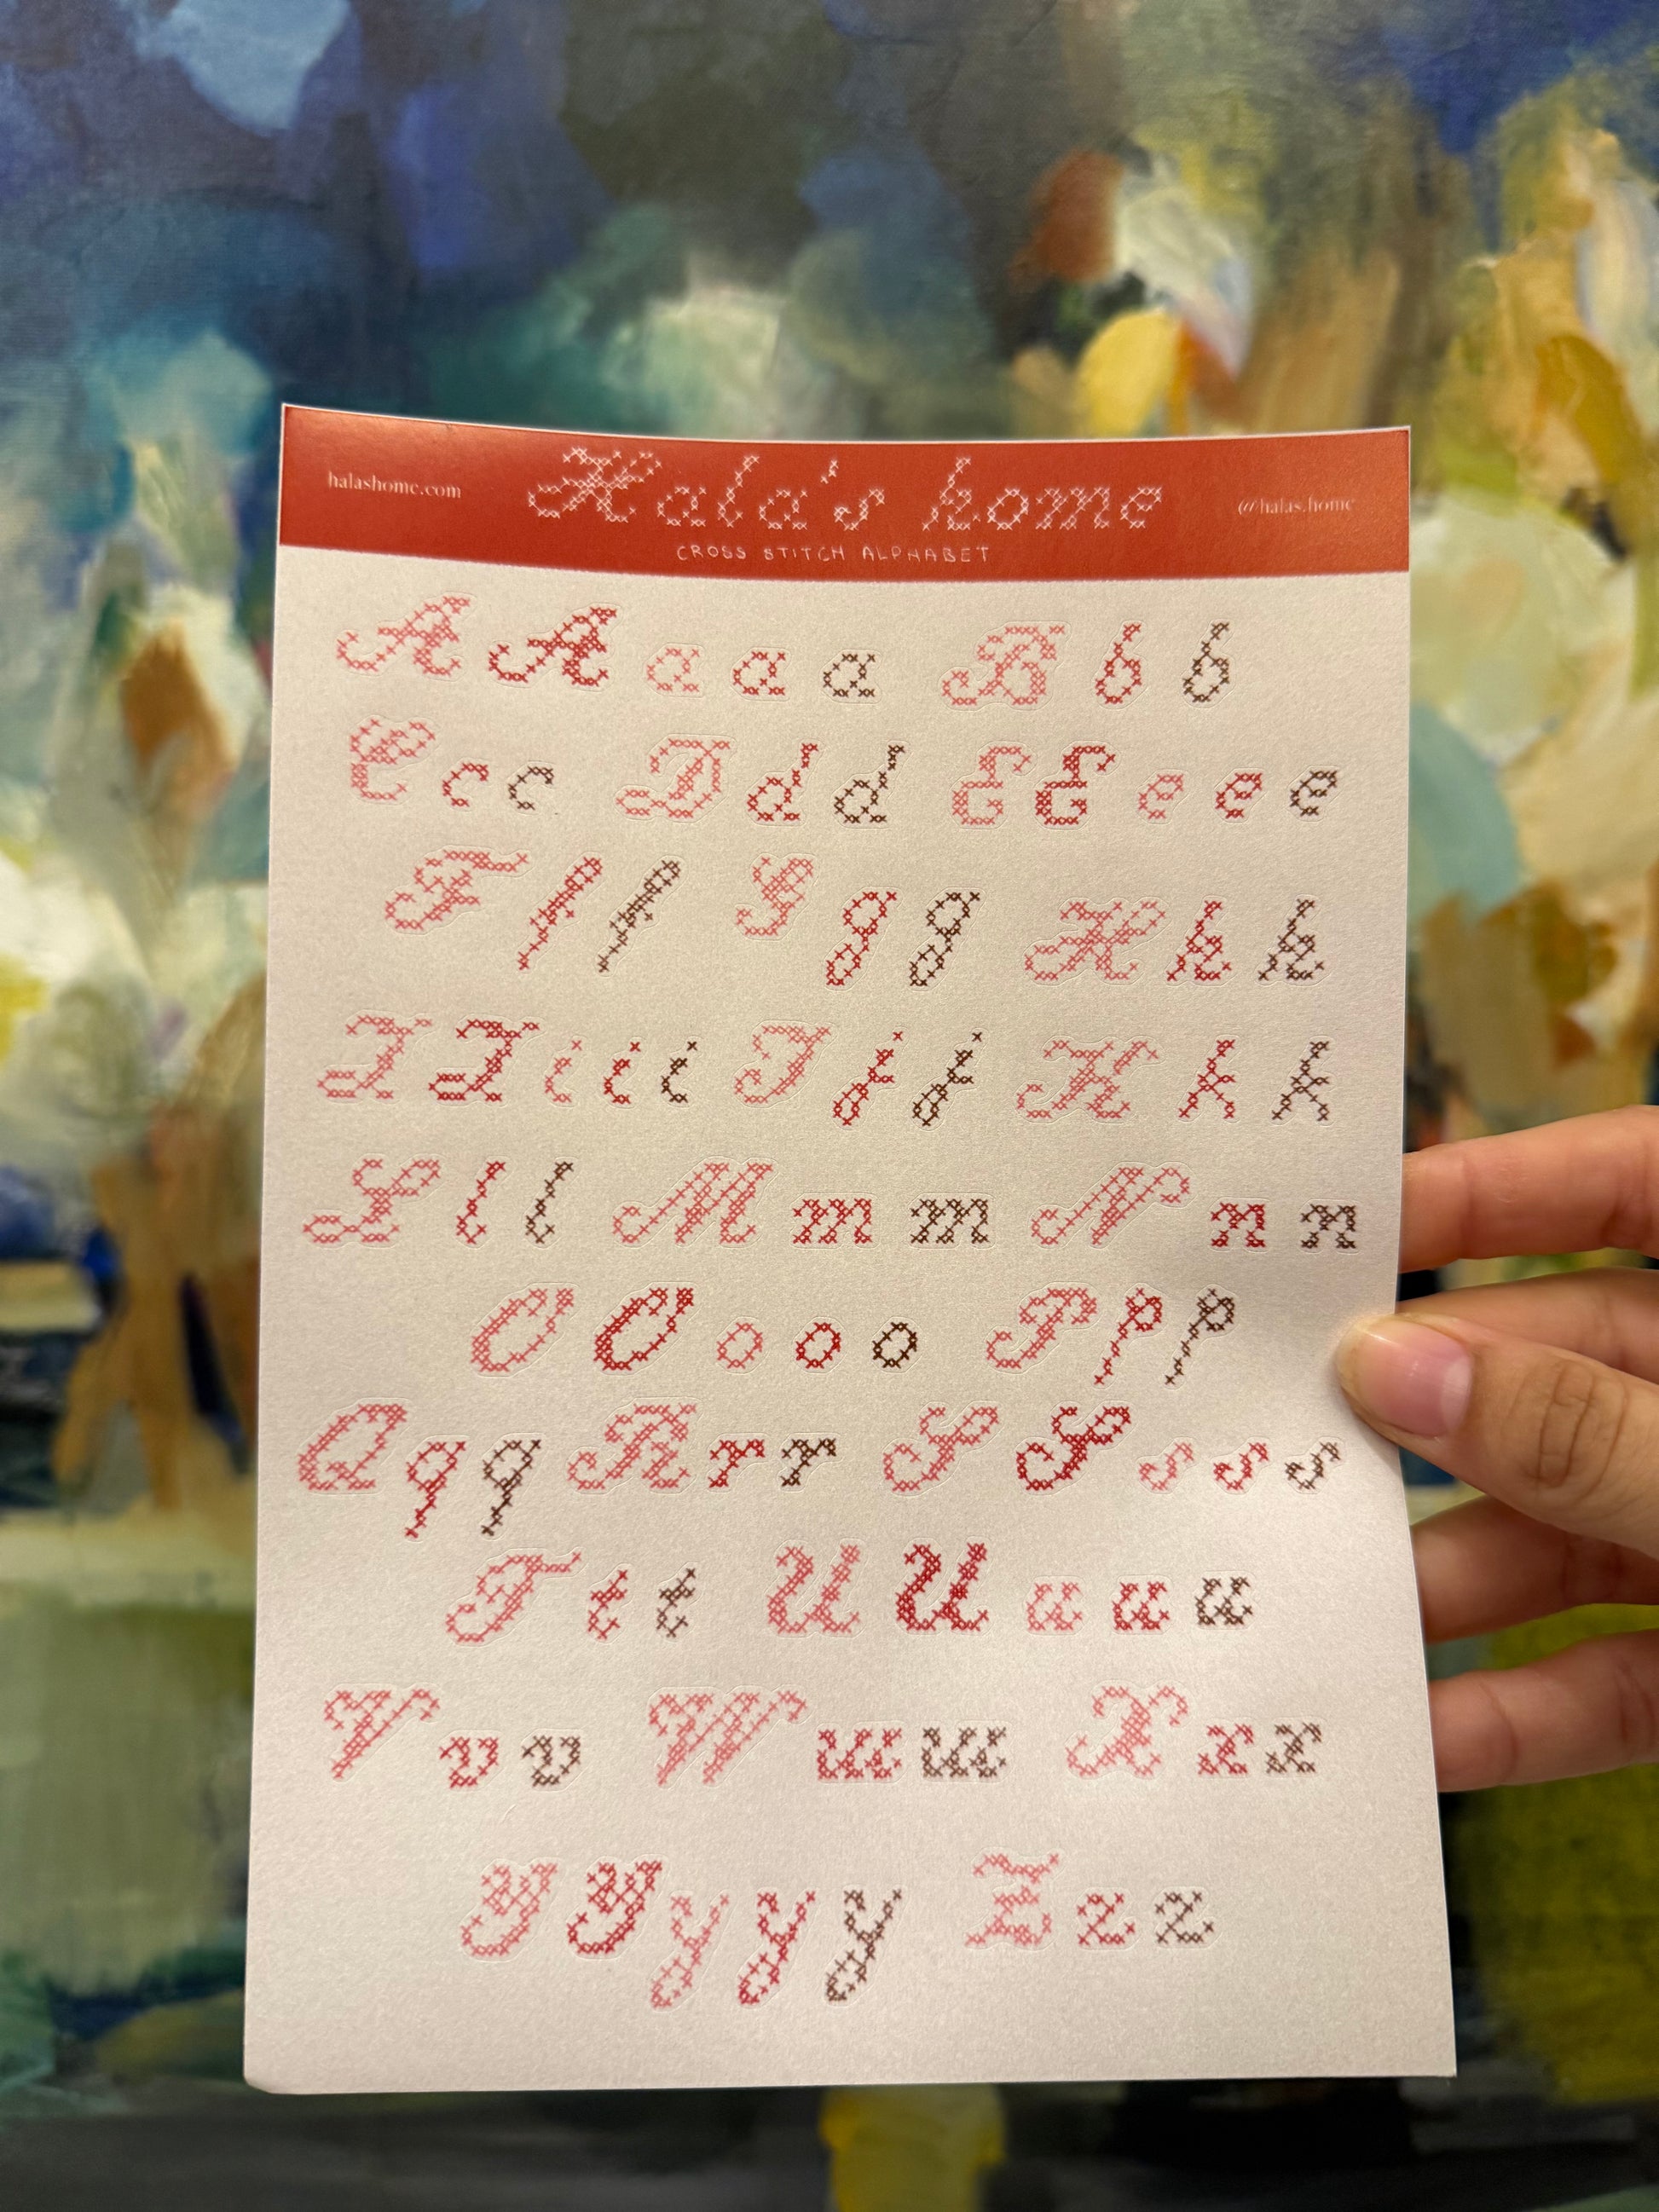 halashome.com Hala's home @halas.home
CROSS STITCH ALPHABET
A A a a a B b b
C c c D d d E E e e e
F f f G g g H h h
I I i i i J j j K k k
L l l M m m N n n
O O o o o P p p
Q q q R r r S S s s s
T t t U U u u u
V v v W w w X x x
Y Y y y y Z z z